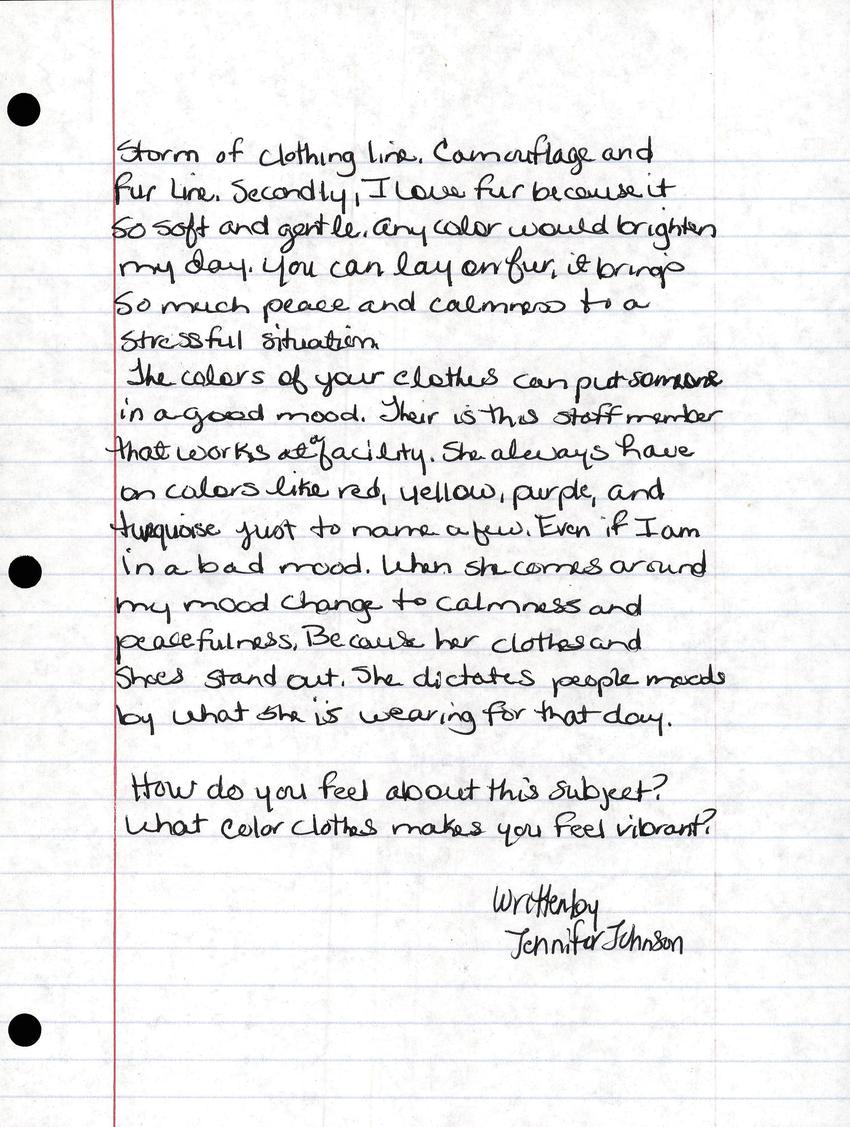 Storm of clothing line. Camouflage and
fur line. Secondly, I love fur because it
so soft and gentle. Any color would brighten
my day. You can lay on fur, it brings
so much peace and calmness to a
stressful situation.
The colors of your clothes can put someone
in a good mood. Their is this staff member
that works at a facility. She always have
on colors like red, yellow, purple, and
turquoise just to name a few. Even if I am
in a bad mood. When she comes around
my mood change to calmness and
peacefulness. Because her clothes and
shoes stand out. She dictates people moods
by what she is wearing for that day.
How do you feel about this subject?
What color clothes makes you feel vibrant?
Written by
Jennifer Johnson